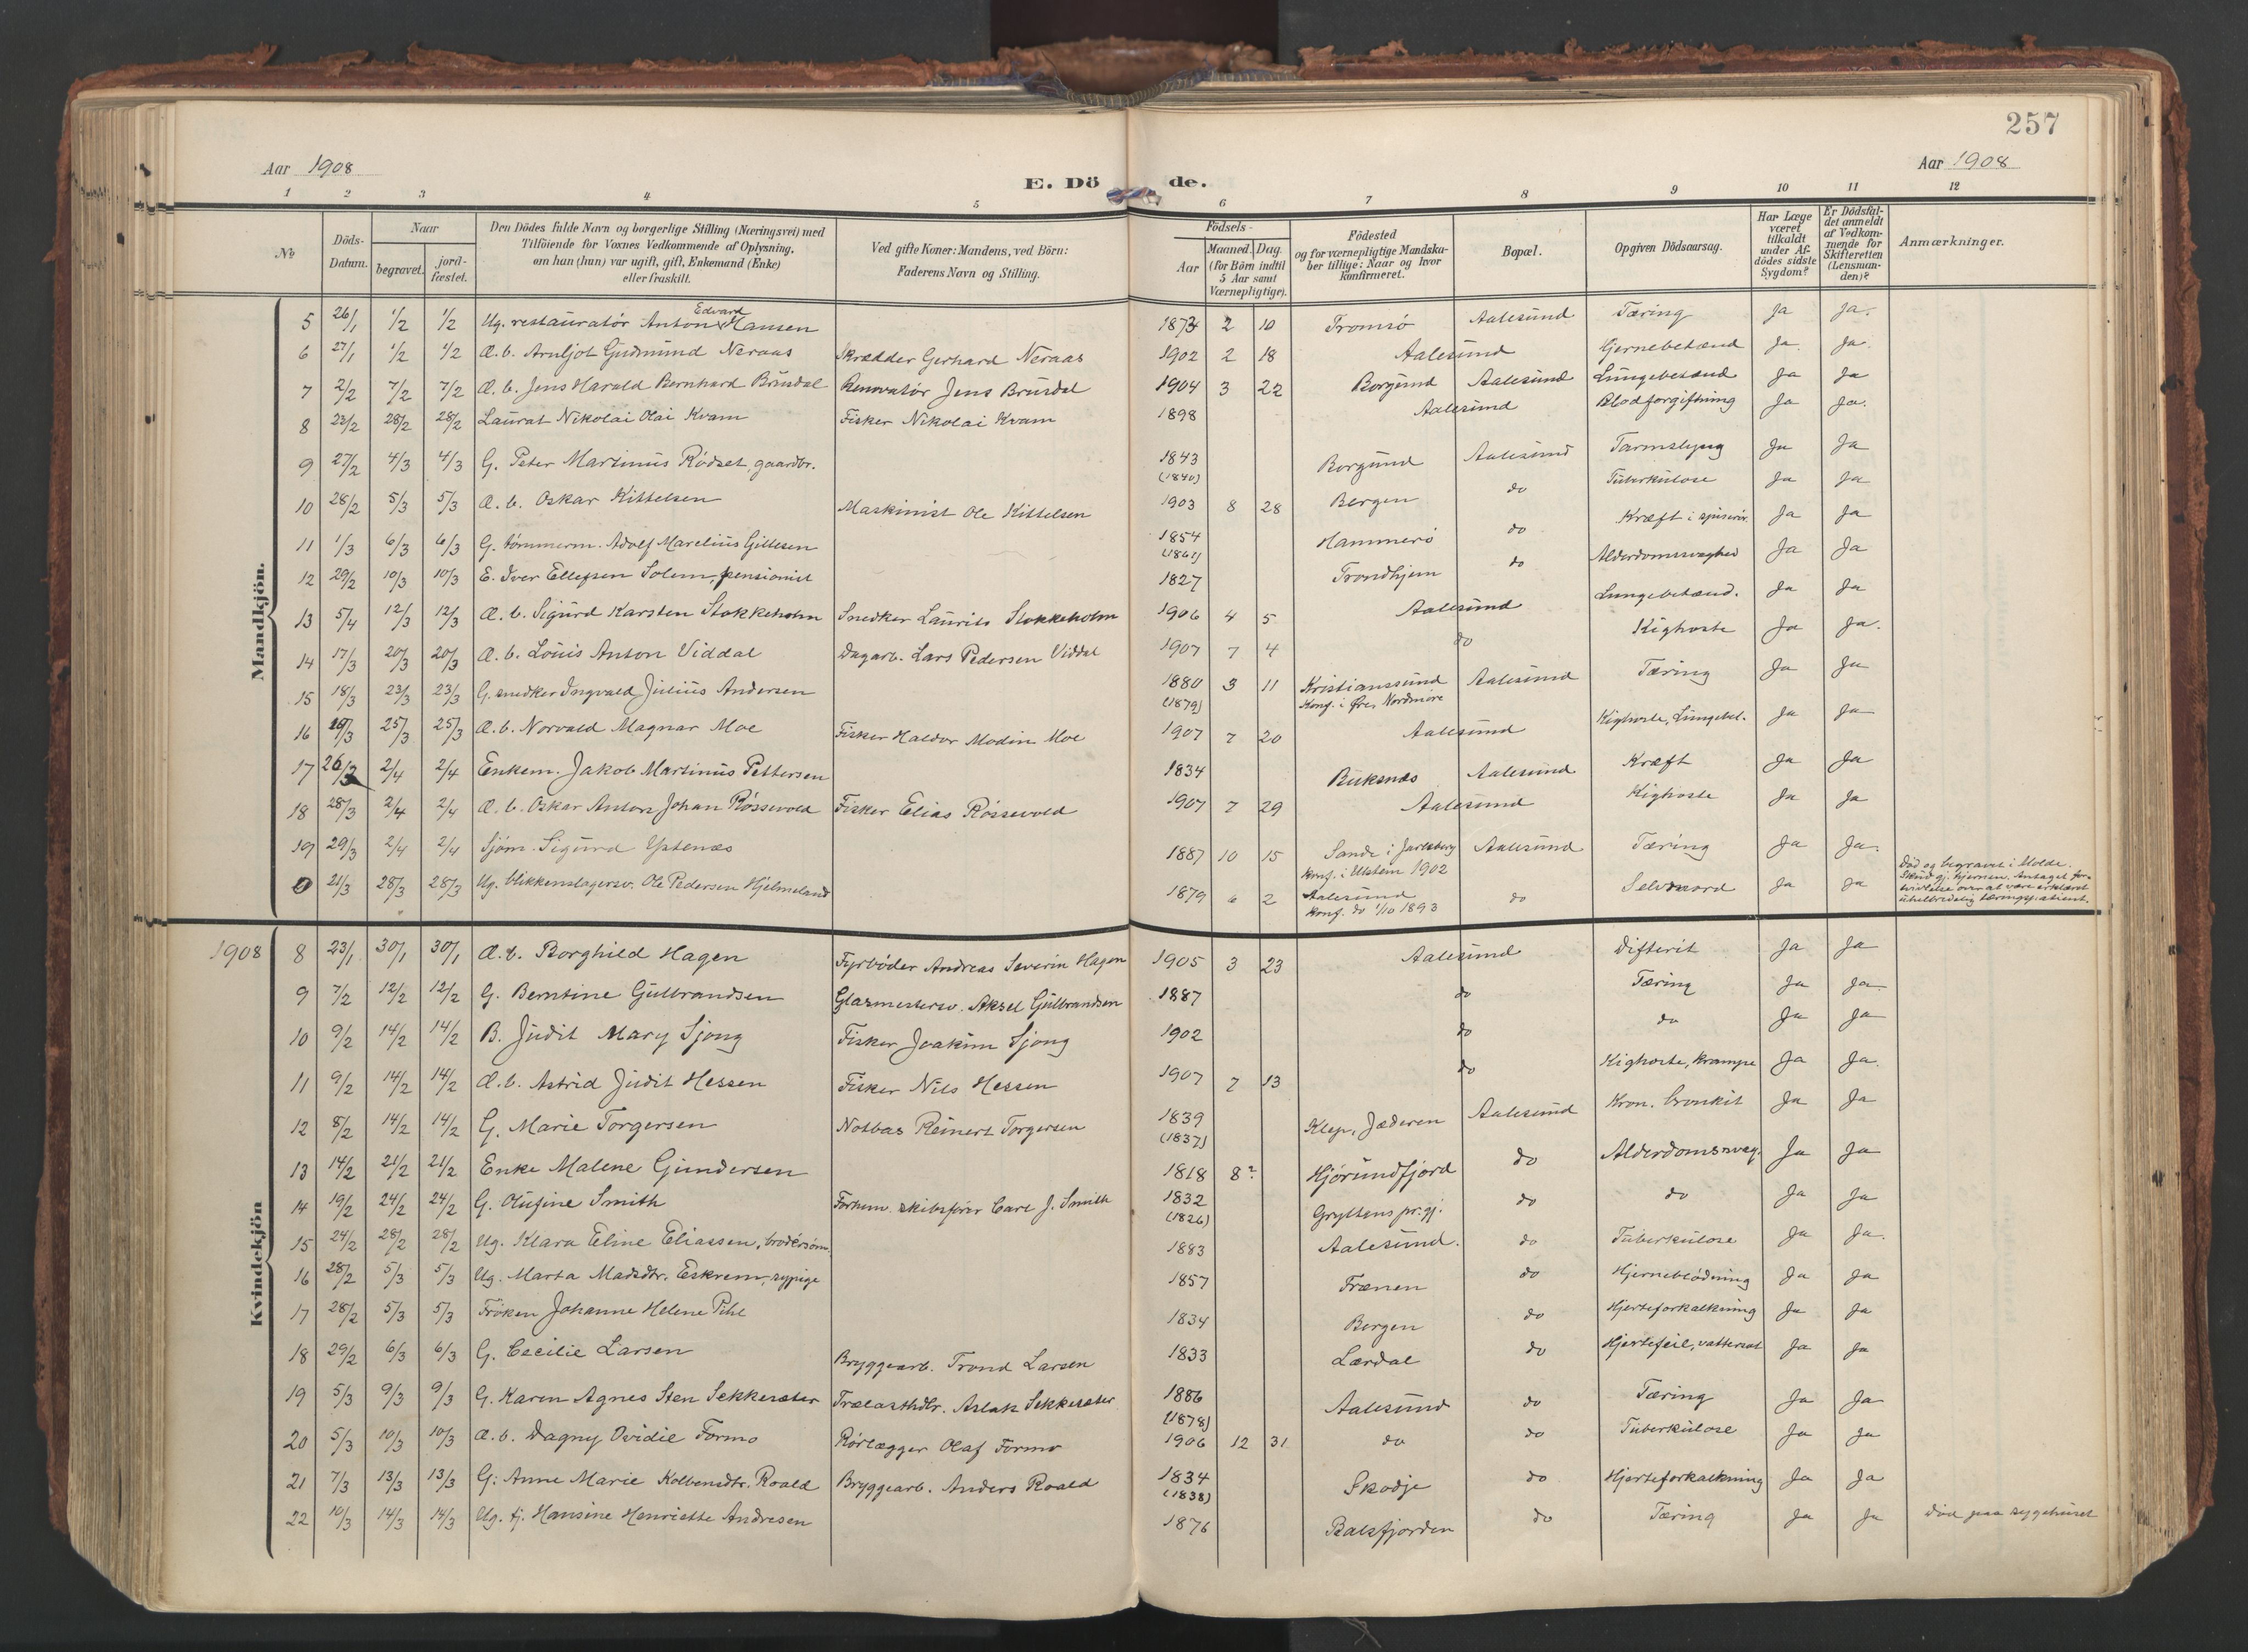 257
Aar 1908
E. Dö de.
Aar 1908
1 2 3 4 5 6 7 8 9 10 11 12
No
Döds-Datum.
Naar
begravet. jord-fæstet.
Den Dödes fulde Navn og borgerlige Stilling (Næringsvei) med
Tilföiende for Voxnes Vedkommende af Oplysning,
om han (hun) var ugift, gift, Enkemand (Enke)
eller fraskilt.
Ved gifte Koner: Mandens, ved Börn:
Faderens Navn og Stilling.
Födsels-
Aar Maaned. Dag.
(for Börn indtil
5 Aar samt
Værnepligtige).
Födested
og for værnepligtige Mandska-
ber tillige: Naar og hvor
konfirmeret.
Bopæl.
Opgiven Dödsaarsag.
Har Læge
været
tilkaldt
under Af-
dödes sidste
Sygdom?
Er Dödsfal-
det anmeldt
af Vedkom-
mende for
Skifteretten
(Lensman-
den)?
Anmærkninger.
Mandkjön.
5 26/1 1/2 1/2 Ug. restauratør Anton Edvard Hansen 1873 2 10 Tromsø Aalesund Tæring Ja Ja.
6 27/1 1/2 1/2 Æ. b. Arnljot Gudmund Neraas Skrædder Gerhard Neraas 1902 2 18 Aalesund Hjernebetænd Ja. Ja.
7 2/2 7/2 7/2 Æ. b. Jens Harald Bernhard Brusdal Renovatør Jens Brusdal 1904 3 22 Borgund Aalesund Lungebetænd Ja Ja
8 23/2 28/2 28/2 Laurat Nikolai Olai Kvam Fisker Nikolai Kvam 1898 Aalesund Blodforgiftning Ja Ja.
9 27/2 4/3 4/3 G. Peter Martinus Rødset, gaardbr. 1843 (1840) Borgund Aalesund Tarmslyng Ja Ja
10 28/2 5/3 5/3 Æ. b. Oskar Kittelsen Maskinist Ole Kittelsen 1903 8 28 Bergen do Tuberkulose Ja Ja
11 1/3 6/3 6/3 G. tømmerm. Adolf Marelius Gittesen 1854 (1861) Hammerø do Kræft i spiserør. Ja Ja
12 29/2 10/3 10/3 E. Iver Ellefsen Solem, pensionist 1827 Trondhjem do Alderdomssvaghed Ja Ja
13 5/4 12/3 12/3 Æ. b. Sigurd Karsten Stokkeholm Snedker Laurits Stokkeholm 1906 4 5 Aalesund Lungebetænd. Ja Ja
14 17/3 20/3 20/3 Æ. b. Louis Anton Viddal Dagarb. Lars Pedersen Viddal 1907 7 4 do Kighoste Ja Ja.
15 18/3 23/3 23/3 G. snedker Ingvald Julius Andersen 1880 (1879) 3 11 Kristianssund Konf. i Øres Nordmøre Aalesund Tæring Ja Ja
16 19/3 25/3 25/3 Æ. b. Norvald Magnar Moe Fisker Haldor Modin Moe 1907 7 20 Aalesund Kighoste, Lungebet. Ja Ja
17 26/3 2/4 2/4 Enkem. Jakob Martinus Pettersen 1834 Buksnæs Aalesund Kræft Ja Ja
18 28/3 2/4 2/4 Æ. b. Oskar Anton Johan Røssevold Fisker Elias Røssevold 1907 7 29 Aalesund Kighoste Ja Ja
19 29/3 2/4 2/4 Sjøm. Sigurd Ystenæs 1887 10 15 Sande i Jarlsberg konf. i Ulstein 1902 Aalesund Tæring Ja Ja.
0 21/3 28/3 28/3 Ug. blikkenslagersv. Ole Pedersen Hjelmeland 1879 6 2 Aalesund konf. do 1/10 1893 do Selvmord Ja Ja
Død og begravet i Molde.
Skud gj. hjernen. Antaget for-
tvivlelse over at være erklæret
uhelbredelig tæringspatient.
Kvindekjön
1908
8 23/1 30/1 30/1 Æ. b. Borghild Hagen Fyrbøder Andreas Severin Hagen 1905 3 23 Aalesund Difterit Ja Ja
9 7/2 12/2 12/2 G. Berntine Gulbrandsen Glasmestersv. Aksel Gulbrandsen 1887 do Tæring Ja Ja.
10 9/2 14/2 14/2 B. Judit Mary Sjong Fisker Joakim Sjong 1902 do do Ja Ja
11 9/2 14/2 14/2 Æ. b. Astrid Judit Hessen Fisker Nils Hessen 1907 7 13 do Kighoste, krampe Ja Ja.
12 8/2 14/2 14/2 G. Marie Torgersen Notbas Reinert Torgersen 1839 (1837) Klep, Jæderen Aalesund Kron. bronkit Ja Ja
13 14/2 21/2 21/2 Enke Malene Gundersen 1818 8? Hjørundfjord do Alderdomssvag. Ja Ja
14 19/2 24/2 24/2 G. Olufine Smith Forhenv. skibsfører Carl J. Smith 1832 (1826) Gryttens pr.gj. do do Ja Ja
15 24/2 28/2 28/2 Ug. Klara Eline Eliassen, brodersøm. 1883 Aalesund. do Tuberkulose Ja Ja.
16 28/2 5/3 5/3 Ug. Marta Madsdtr. Eskrem, sypige 1857 Frænen do Hjerneblødning Ja Ja
17 28/2 5/3 5/3 Frøken Johanne Helene Pihl 1834 Bergen do Hjerteforkalkning Ja Ja
18 29/2 6/3 6/3 G. Cecilie Larsen Bryggearb. Trond Larsen 1833 Lærdal do Hjertefeil, vattersot Ja Ja
19 5/3 9/3 9/3 G. Karen Agnes Sten Sekkesæter Trælasthdlr. Aslak Sekkesæter 1886 (1878) Aalesund do Tæring Ja Ja
20 5/3 10/3 10/3 Æ. b. Dagny Ovidie Formo Rørlægger Olaf Formo 1906 12 31 do do Tuberkulose Ja Ja
21 7/3 13/3 13/3 G. Anne Marie Kolbensdtr. Roald Bryggearb. Anders Roald 1834 (1838) Skodje do Hjerteforkalkning Ja Ja
22 10/3 14/3 14/3 Ug. tj. Hansine Henriette Andresen 1876 Balsfjorden do Tæring Ja Ja død paa sygehuset